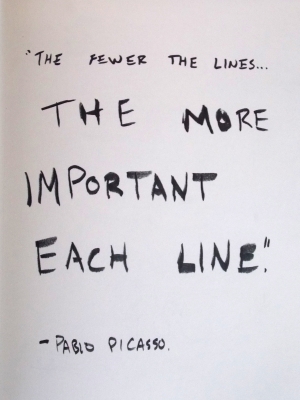 "THE FEWER THE LINES...
THE MORE
IMPORTANT
EACH LINE."
- PABLO PICASSO.